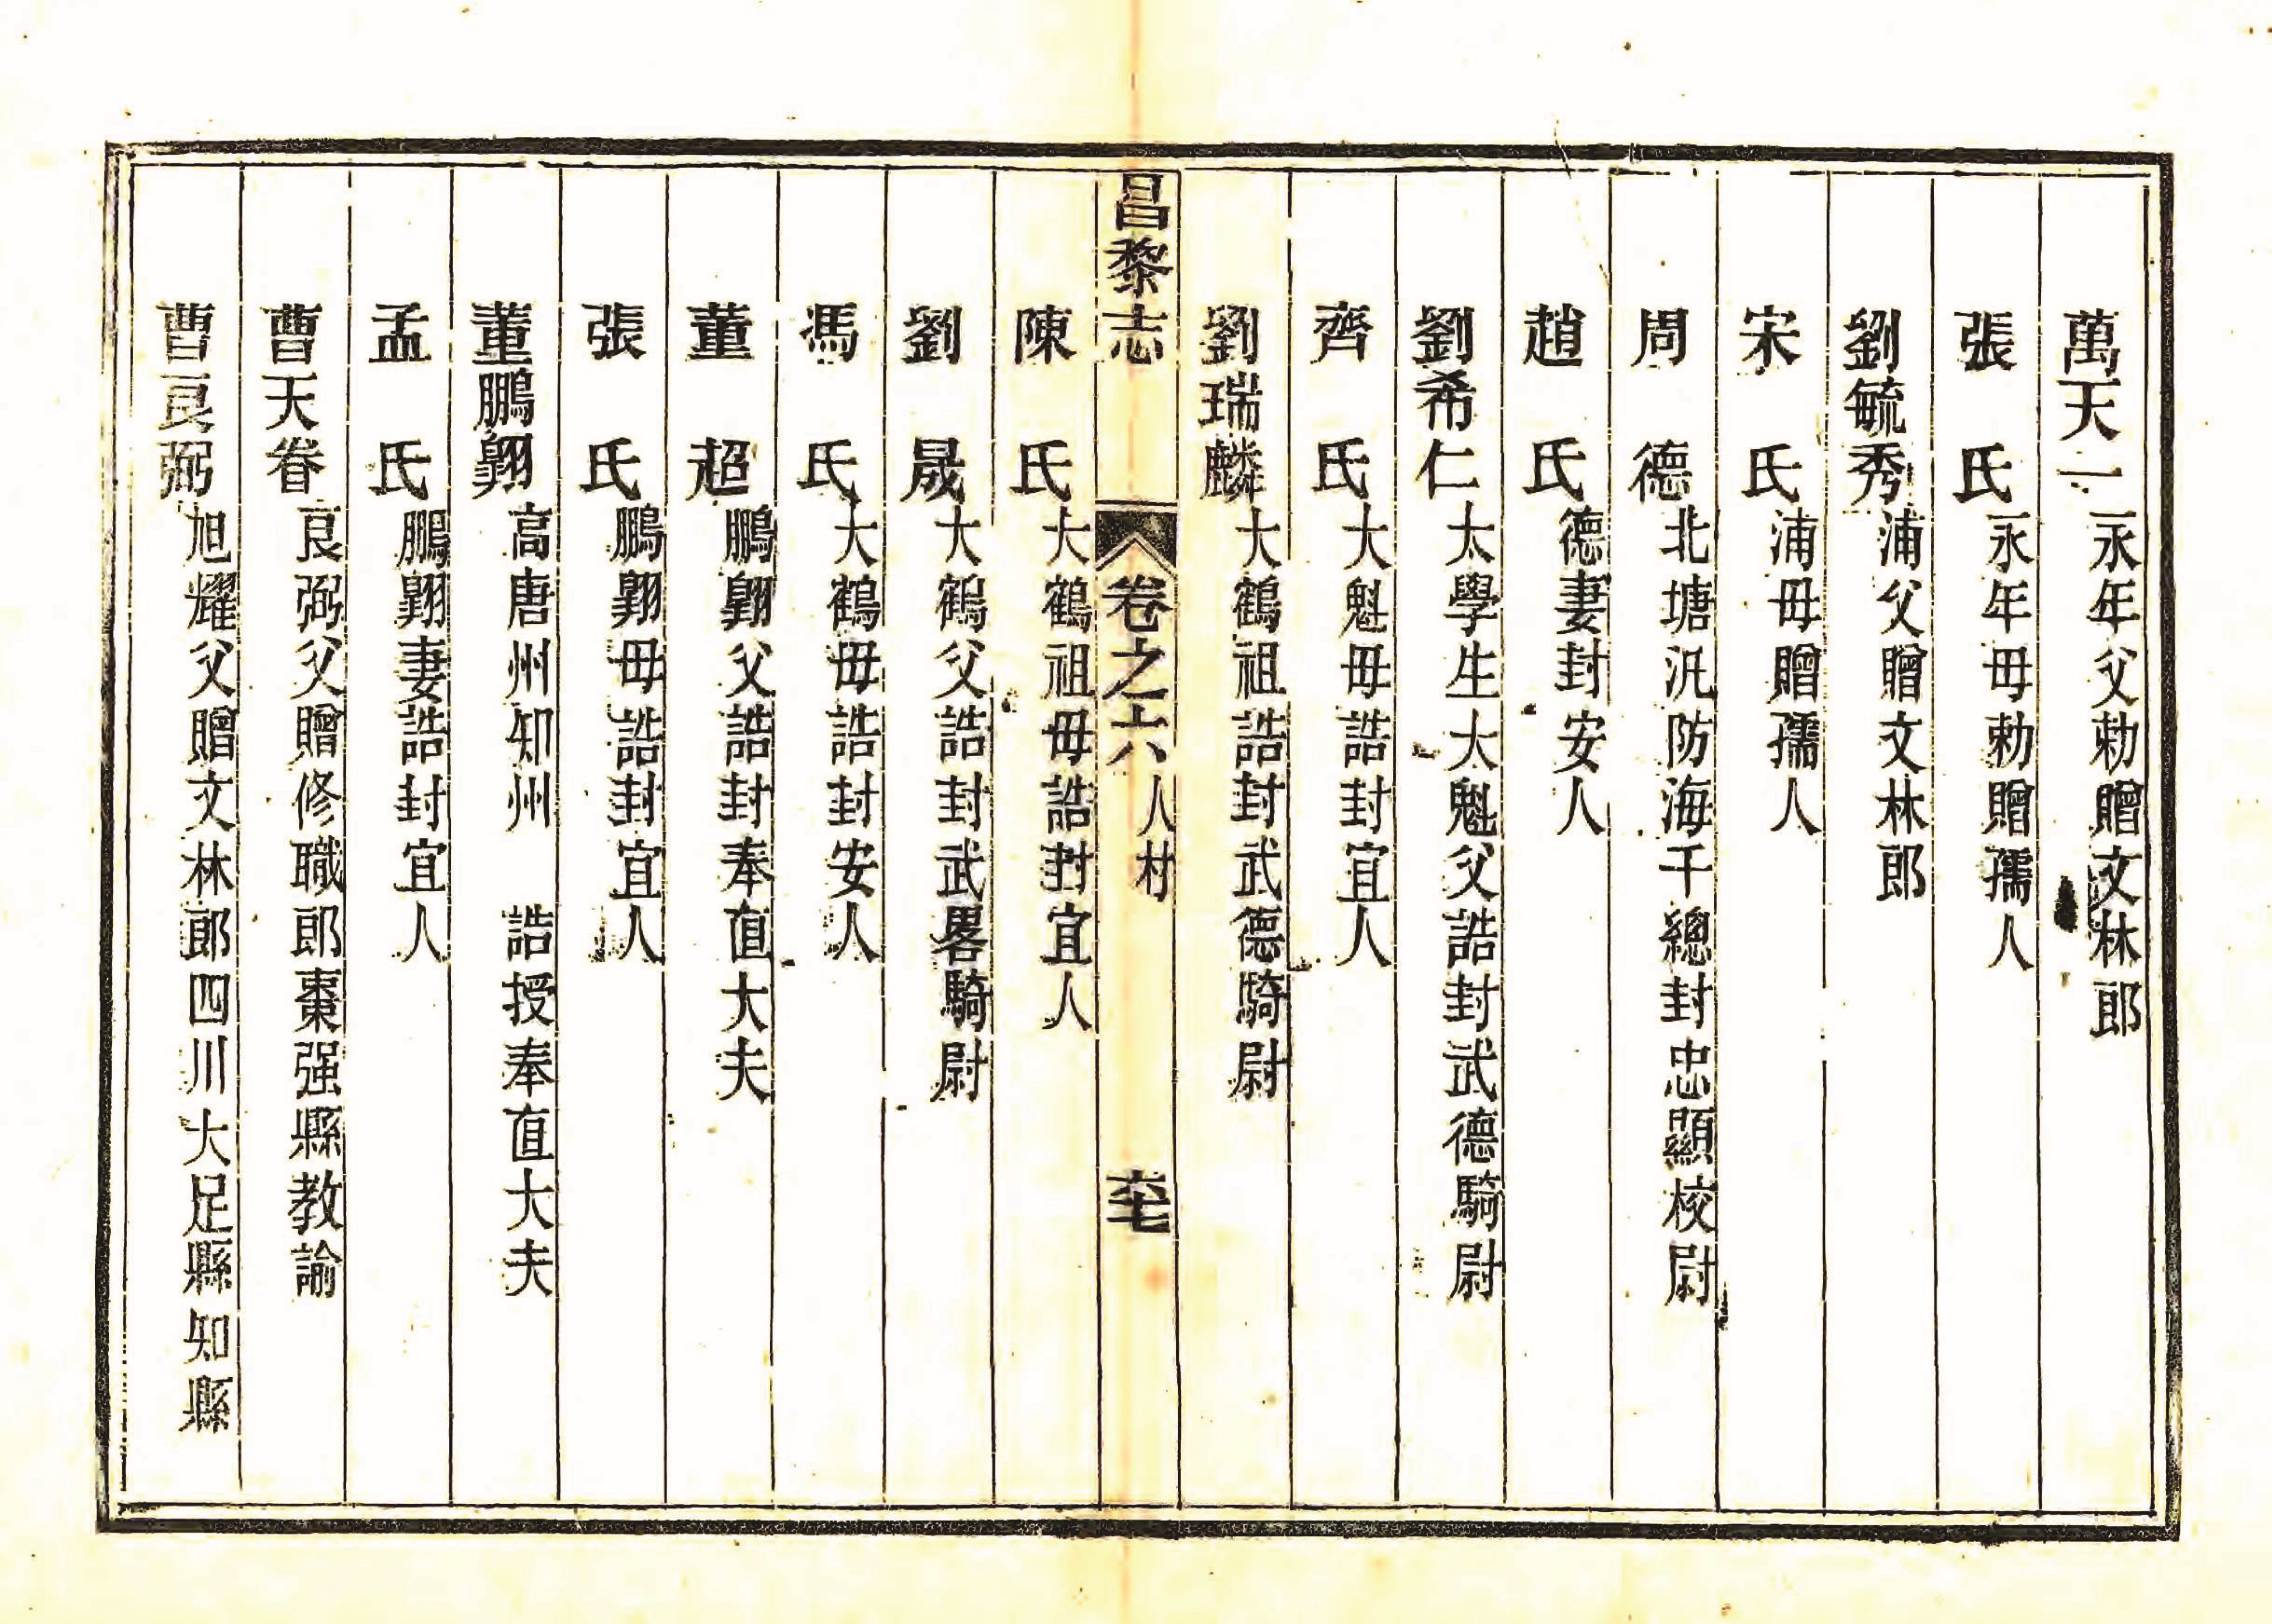 萬天一永年父勅贈文林郎
張氏永年毋勅贈孺人
劉毓秀浦父贈文林郎
宋氏浦毋贈孺人
周德北塘汛防海千總封忠顯校尉
趙氏德妻封安人
劉希仁太學生大魁父誥封武德騎尉
齊氏大魁毋誥封宜人
劉瑞麟大鶴祖誥封武德騎尉
昌黎志 卷之六 人材 六七
陳氏大鶴祖毋誥封宜人
劉晟大鶴父誥封武畧騎尉
馮氏大鶴毋誥封安人
董超鵬翺父誥封奉直大夫
張氏鵬翺毋誥封宜人
董鵬翺高唐州知州 誥授奉直大夫
孟氏鵬翺妻誥封宜人
曹天眷良弼父贈修職郎棗强縣教諭
曹良弼旭耀父贈文林郎四川大足縣知縣